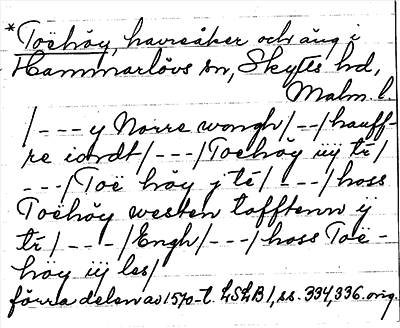 *Toëhöy, havreåker och äng i
Hammarlövs sn, Skytts hd,
Malm. l.
/---y Norre wongh/--/hauff-
re iordt/---/Toëhöy iij tï/
---/Toë höy j tï/---/hoss
Toëhöy westen tofftenn ij
tï/---/Engh/---/hoss Toë-
höy iij les/
förra delen av 1570-t. LSLB 1, ss. 334, 336. orig.